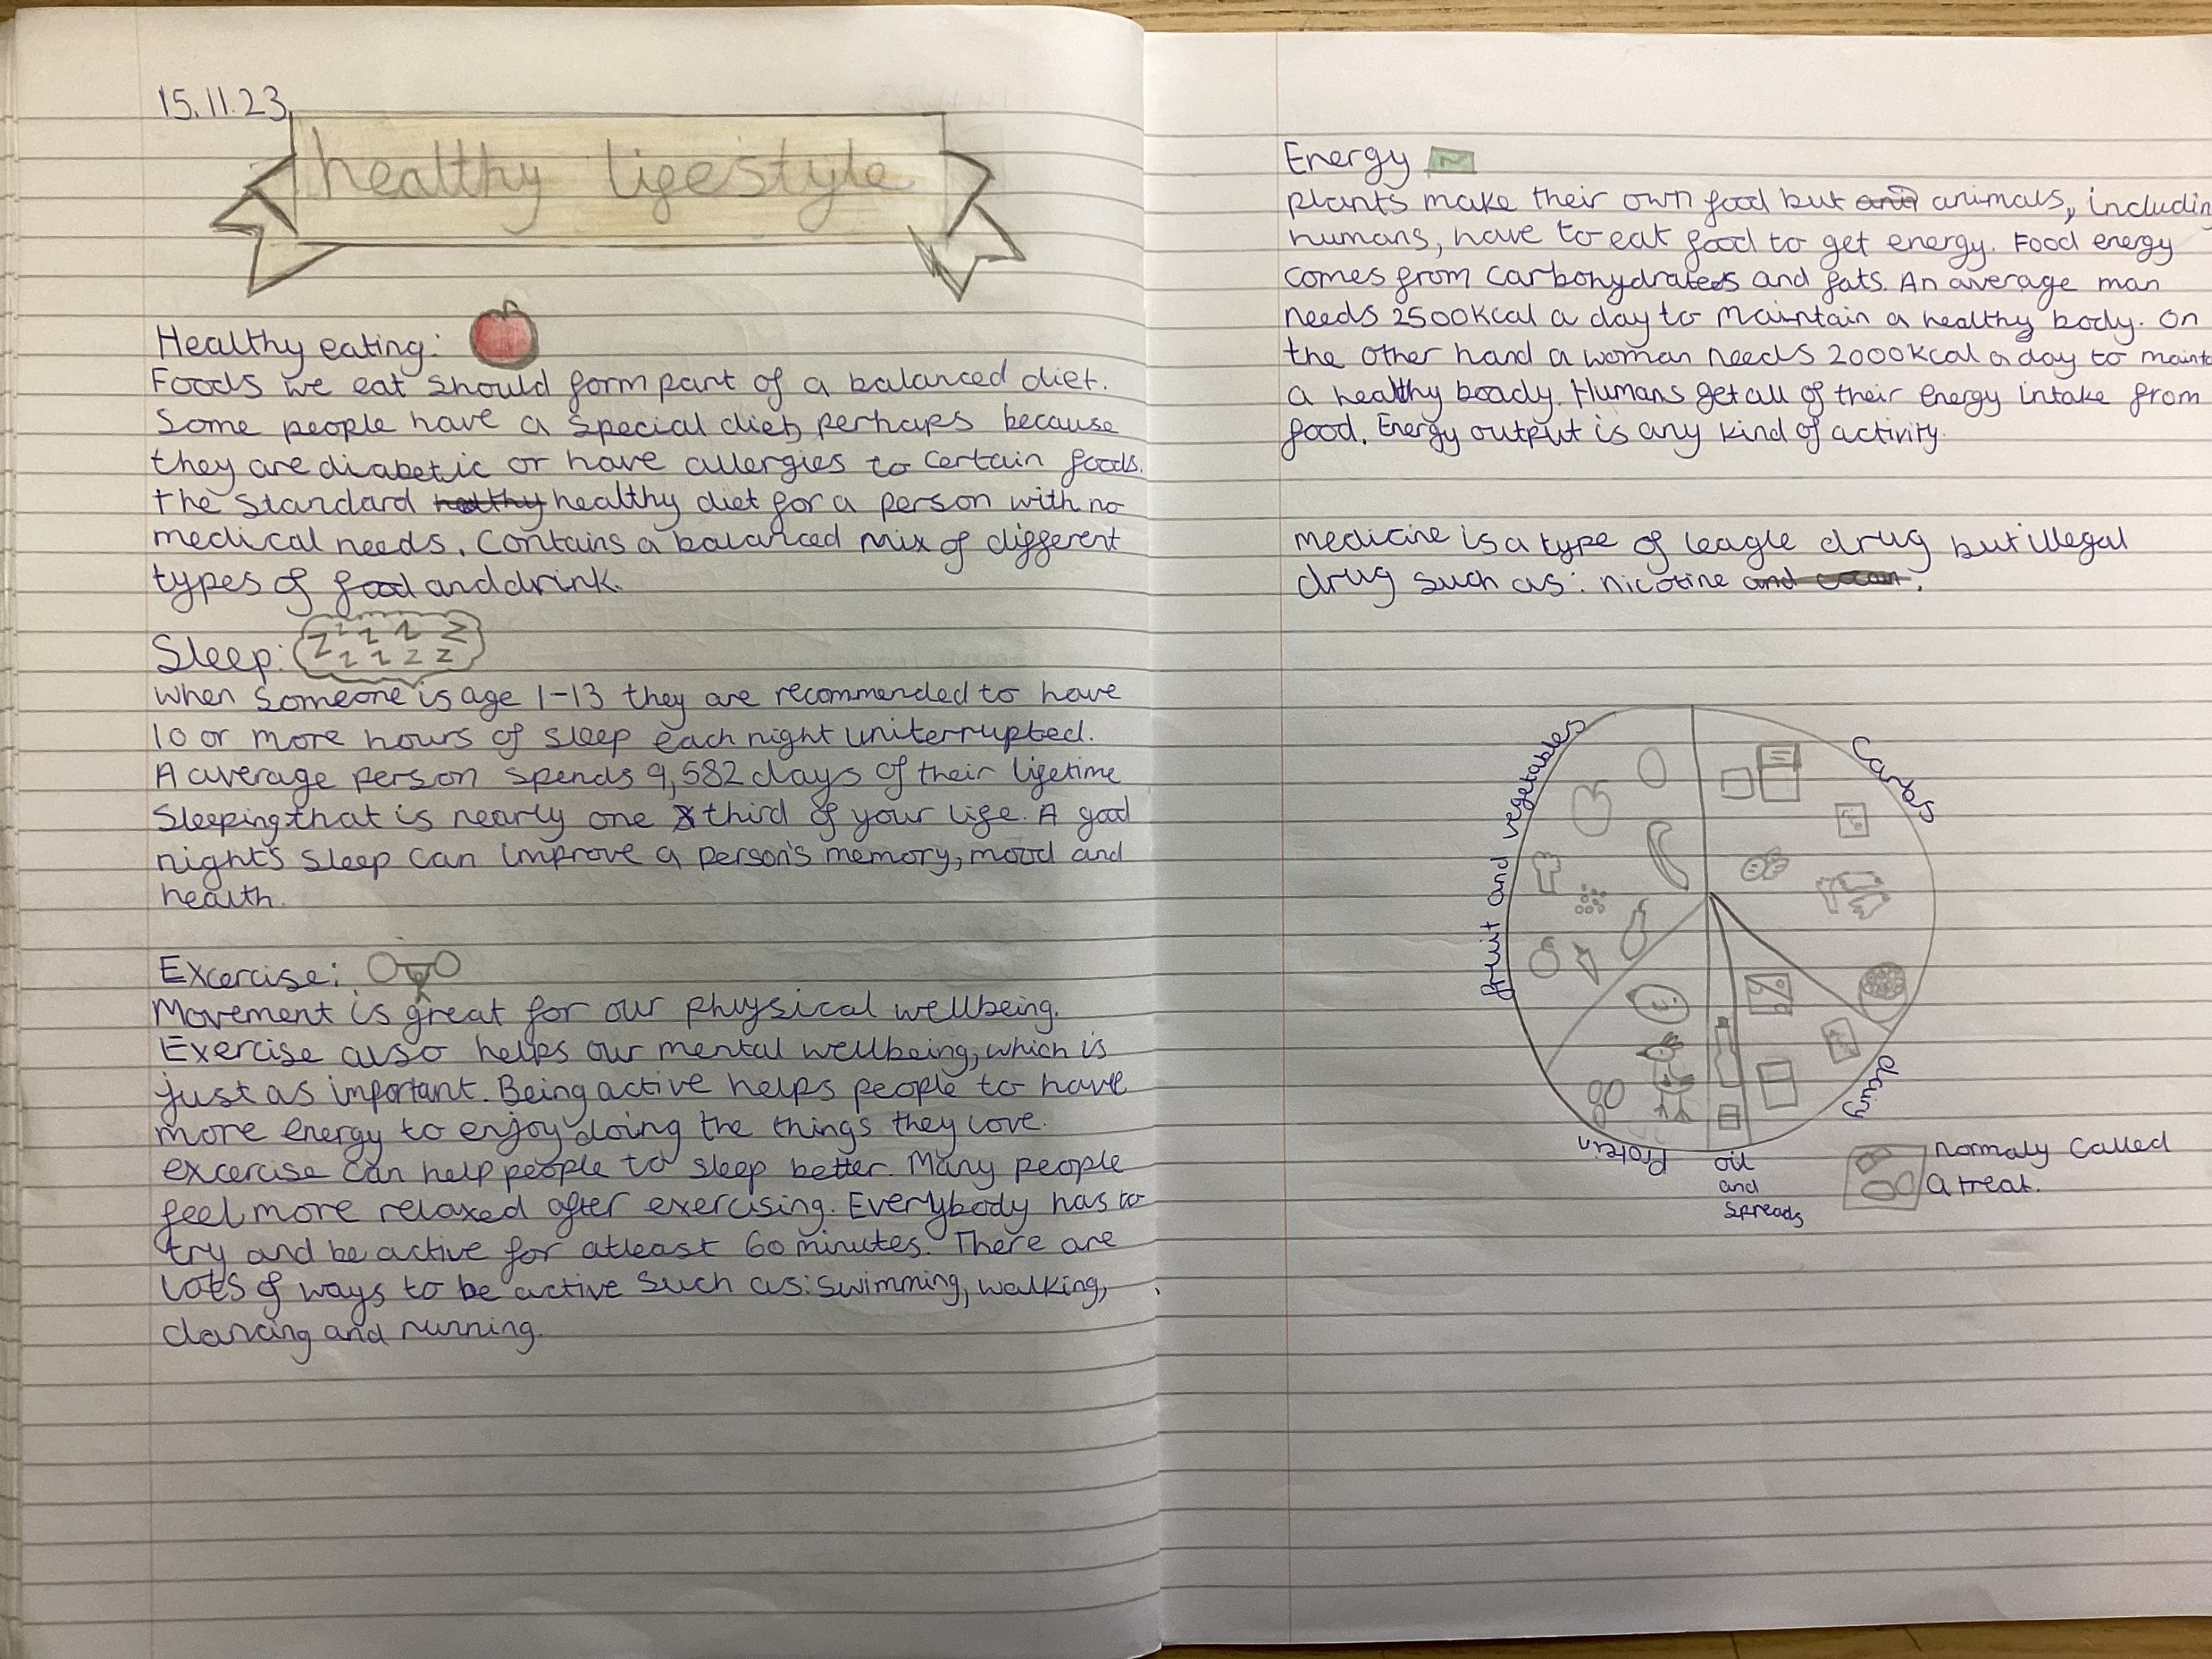 15.11.23
healthy lifestyle
Healthy eating:
Foods we eat should form part of a balanced diet.
Some people have a special diet, perhaps because
they are diabetic or have allergies to certain foods.
The standard healthy diet for a person with no
medical needs. Contains a balanced mix of different
types of food and drink.
Sleep:
z z z z z
z z z z
When someone is age 1-13 they are recommended to have
10 or more hours of sleep each night uniterrupted.
A average person spends 9,582 days of their lifetime
sleeping that is nearly one third of your life. A good
night's sleep can improve a person's memory, mood and
health.
Excercise:
Movement is great for our physical wellbeing.
Exercise also helps our mental wellbeing, which is
just as important. Being active helps people to have
more energy to enjoy doing the things they love.
excercise can help people to sleep better. Many people
feel more relaxed after exercising. Everybody has to
try and be active for atleast 60 minutes. There are
lots of ways to be active such as: swimming, walking,
dancing and running.
Energy
plants make their own food but animals, includin
humans, have to eat food to get energy. Food energy
comes from carbohydrates and fats. An average man
needs 2500kcal a day to maintain a healthy body. On
the other hand a woman needs 2000kcal a day to maint
a healthy boady. Humans get all of their energy intake from
food. Energy output is any kind of activity.
medicine is a type of leagle drug but illegal
drug such as: nicotine.
fruit and vegetables
Carbs
dairy
Protein
oil
and
spreads
normaly called
a treat.